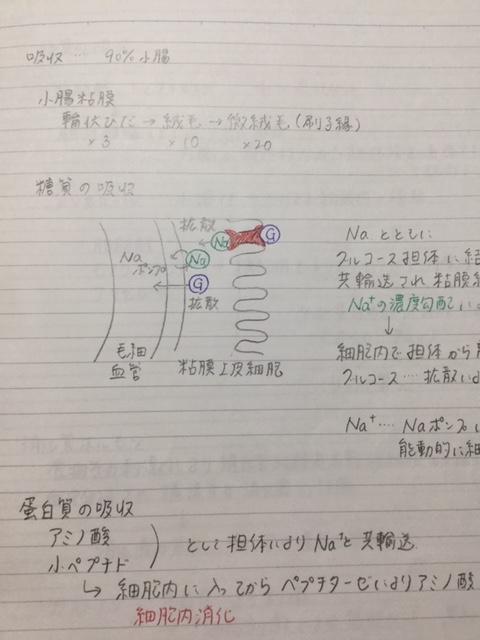 吸収 … 90% 小腸
小腸粘膜
輪状ひだ → 絨毛 → 微絨毛 (刷子縁)
×3 ×10 ×20
糖質の吸収
拡散
Na
G
Na
ポンプ
Na
G
拡散
毛細
血管
粘膜上皮細胞
Na とともに
グルコース担体に結
共輸送され 粘膜細
Na⁺の濃度勾配によ
↓
細胞内で担体から
グルコース … 拡散によ
Na⁺ … Naポンプに
能動的に細
蛋白質の吸収
アミノ酸
小ペプチド
として担体によりNa⁺と共輸送
↳ 細胞内に入ってから ペプチターゼによりアミノ酸
細胞内消化